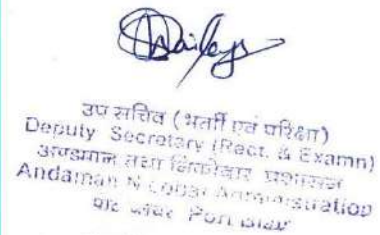 उप सचिव (भर्ती एवं परिक्षा)
Deputy Secretary (Rect. & Examn)
अण्डमान तथा निकोबार प्रशासन
Andaman N Cobar Administration
पोर्ट ब्लेयर Port Blair